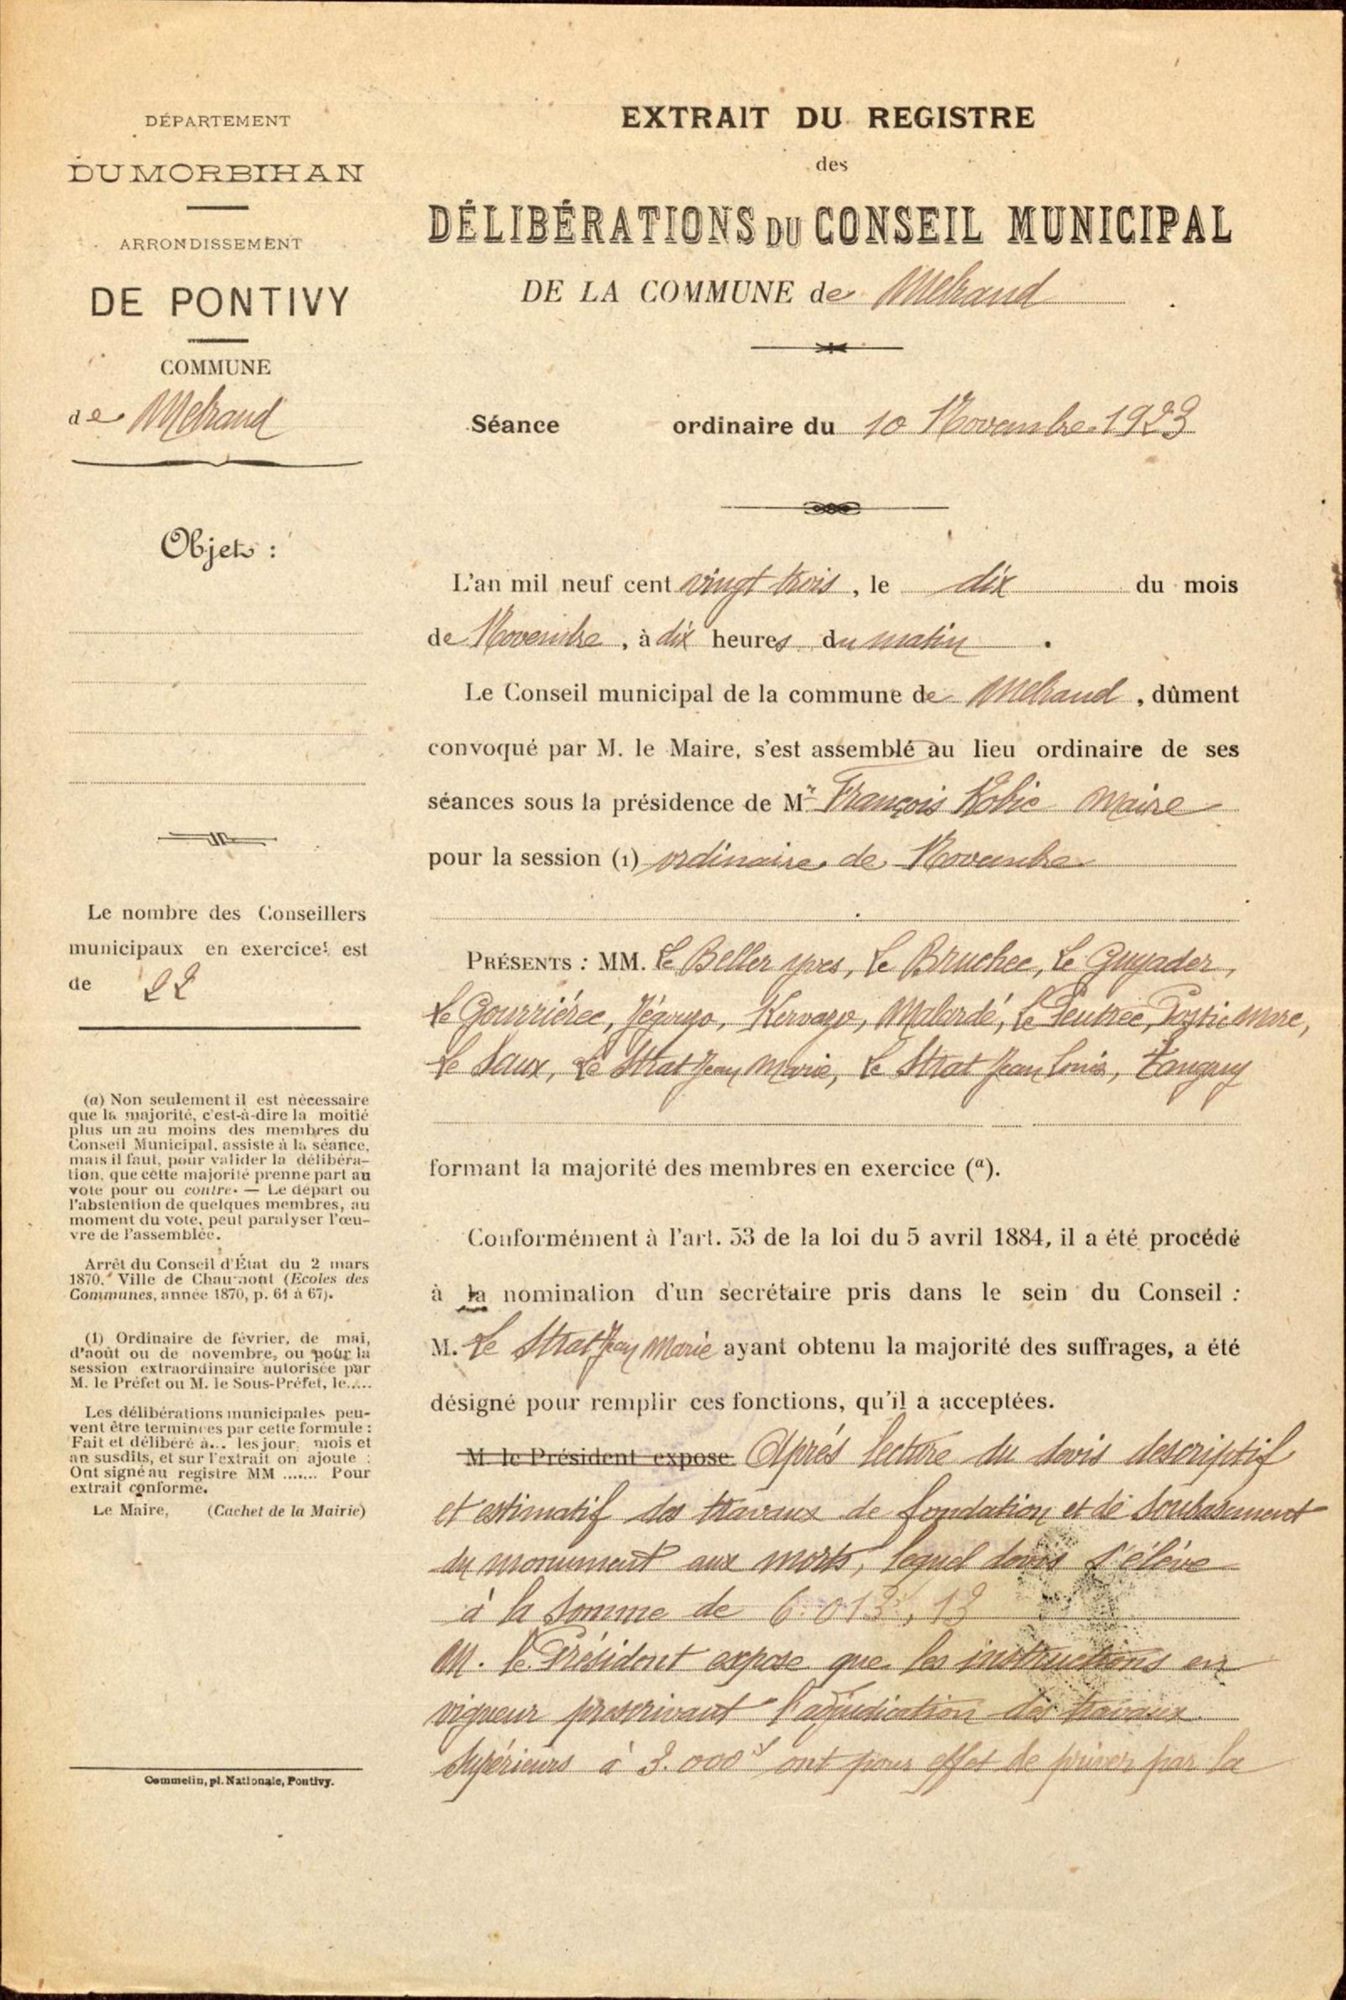 DÉPARTEMENT
DU MORBIHAN
ARRONDISSEMENT
DE PONTIVY
COMMUNE
de Melrand
Objet :
Le nombre des Conseillers
municipaux en exercice est
de 22
(a) Non seulement il est nécessaire
que la majorité, c'est-à-dire la moitié
plus un au moins des membres du
Conseil Municipal, assiste à la séance,
mais il faut, pour valider la délibéra-
tion, que cette majorité prenne part au
vote pour ou contre. — Le départ ou
l'abstention de quelques membres, au
moment du vote, peut paralyser l'œu-
vre de l'assemblée.
Arrêt du Conseil d'État du 2 mars
1870. Ville de Chaumont (Ecoles des
Communes, année 1870, p. 61 à 67).
(1) Ordinaire de février, de mai,
d'août ou de novembre, ou pour la
session extraordinaire autorisée par
M. le Préfet ou M. le Sous-Préfet, le.....
Les délibérations municipales peu-
vent être terminées par cette formule :
Fait et délibéré à... les jour, mois et
an susdits, et sur l'extrait on ajoute :
Ont signé au registre MM ....... Pour
extrait conforme.
Le Maire, (Cachet de la Mairie)
Commelin, pl. Nationale, Pontivy.
EXTRAIT DU REGISTRE
des
DÉLIBÉRATIONS DU CONSEIL MUNICIPAL
DE LA COMMUNE de Melrand
Séance ordinaire du 10 Novembre 1923
L'an mil neuf cent vingt trois, le dix du mois
de Novembre, à dix heures du matin.
Le Conseil municipal de la commune de Melrand, dûment
convoqué par M. le Maire, s'est assemblé au lieu ordinaire de ses
séances sous la présidence de Mr François Robic Maire
pour la session (1) ordinaire de Novembre
PRÉSENTS : MM. Le Beller Yves, Le Bruchec, Le Guyader,
Le Gourriérec, Jégouzo, Kervazo, Malardé, Le Peutrec, Postic Marc,
Le Saux, Le Strat Jean Marie, Le Strat Jean Louis, Tanguy
formant la majorité des membres en exercice (a).
Conformément à l'art. 53 de la loi du 5 avril 1884, il a été procédé
à la nomination d'un secrétaire pris dans le sein du Conseil :
M. Le Strat Jean Marie ayant obtenu la majorité des suffrages, a été
désigné pour remplir ces fonctions, qu'il a acceptées.
M. le Président expose Après lecture du devis descriptif
et estimatif des travaux de fondation et de soubassement
du monument aux morts, lequel devis s'élève
à la somme de 6.013f,13
M. le Président expose que les instructions en
vigueur prescrivant l'adjudication des travaux
supérieurs à 3.000f ont pour effet de priver par la